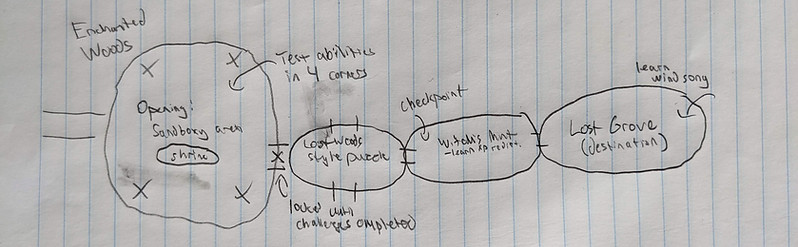 Enchanted
Woods
Test abilities
in 4 corners
Opening:
Sandboxy area
shrine
locked until
challenges completed
Lost Woods
style puzzle
checkpoint
Witch's Hint
- learn
learn
wind song
Lost Grove
(destination)